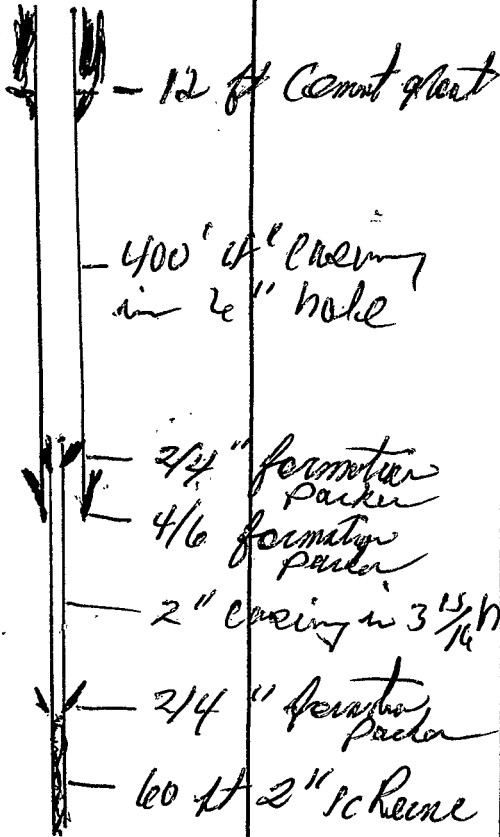 12 ft Cement grout
400' 4" casing
in 6" hole
2/4" formation
Packer
4/6 formation
packer
2" casing in 3 15/16 h
2/4" formation
Packer
60 ft 2" screene